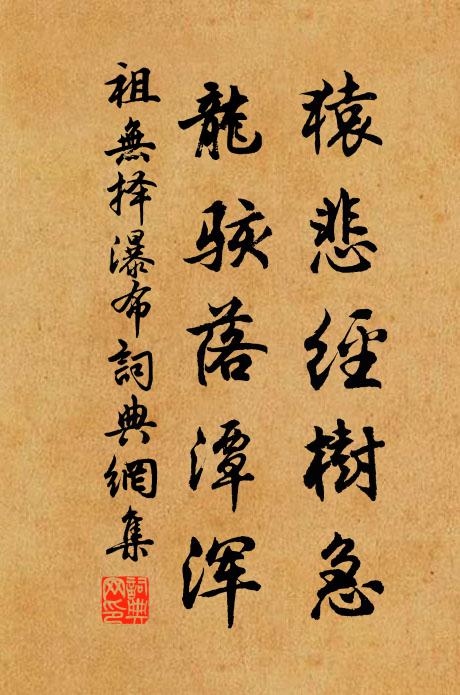 猿悲經樹急
龍駭落潭浑
祖無择瀑布詞典網集
詞典網印